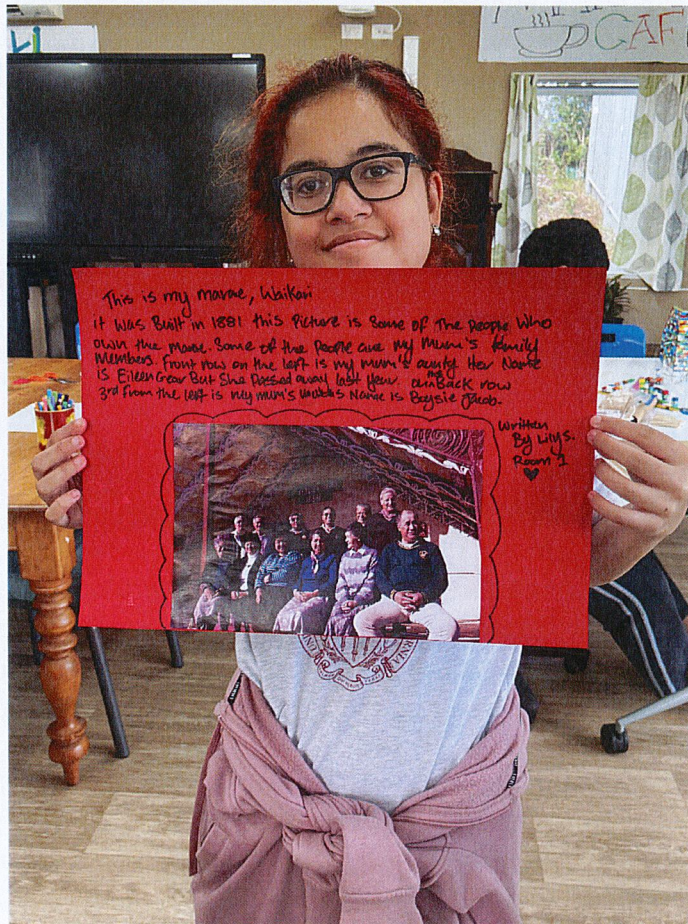 Li
CAF
This is my marae, Waikari
it was Built in 1881 this Picture is Some of The People Who
own the marae. Some of the People are my Mum's family
Members. Front row on the left is my mum's aunty Her Name
is Eileen Gear But She Passed away last year. and Back row
3rd from the left is my mum's Name is Baysie Jacob.
Written
By Lily S.
Room 1